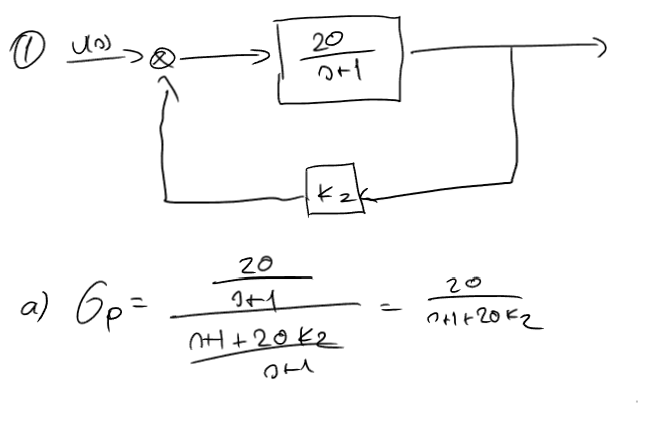 ① U(s) 20
s+1
K2
a) Gp = 20 / s+1 / s+1+20K2 / s+1 = 20 / s+1+20K2